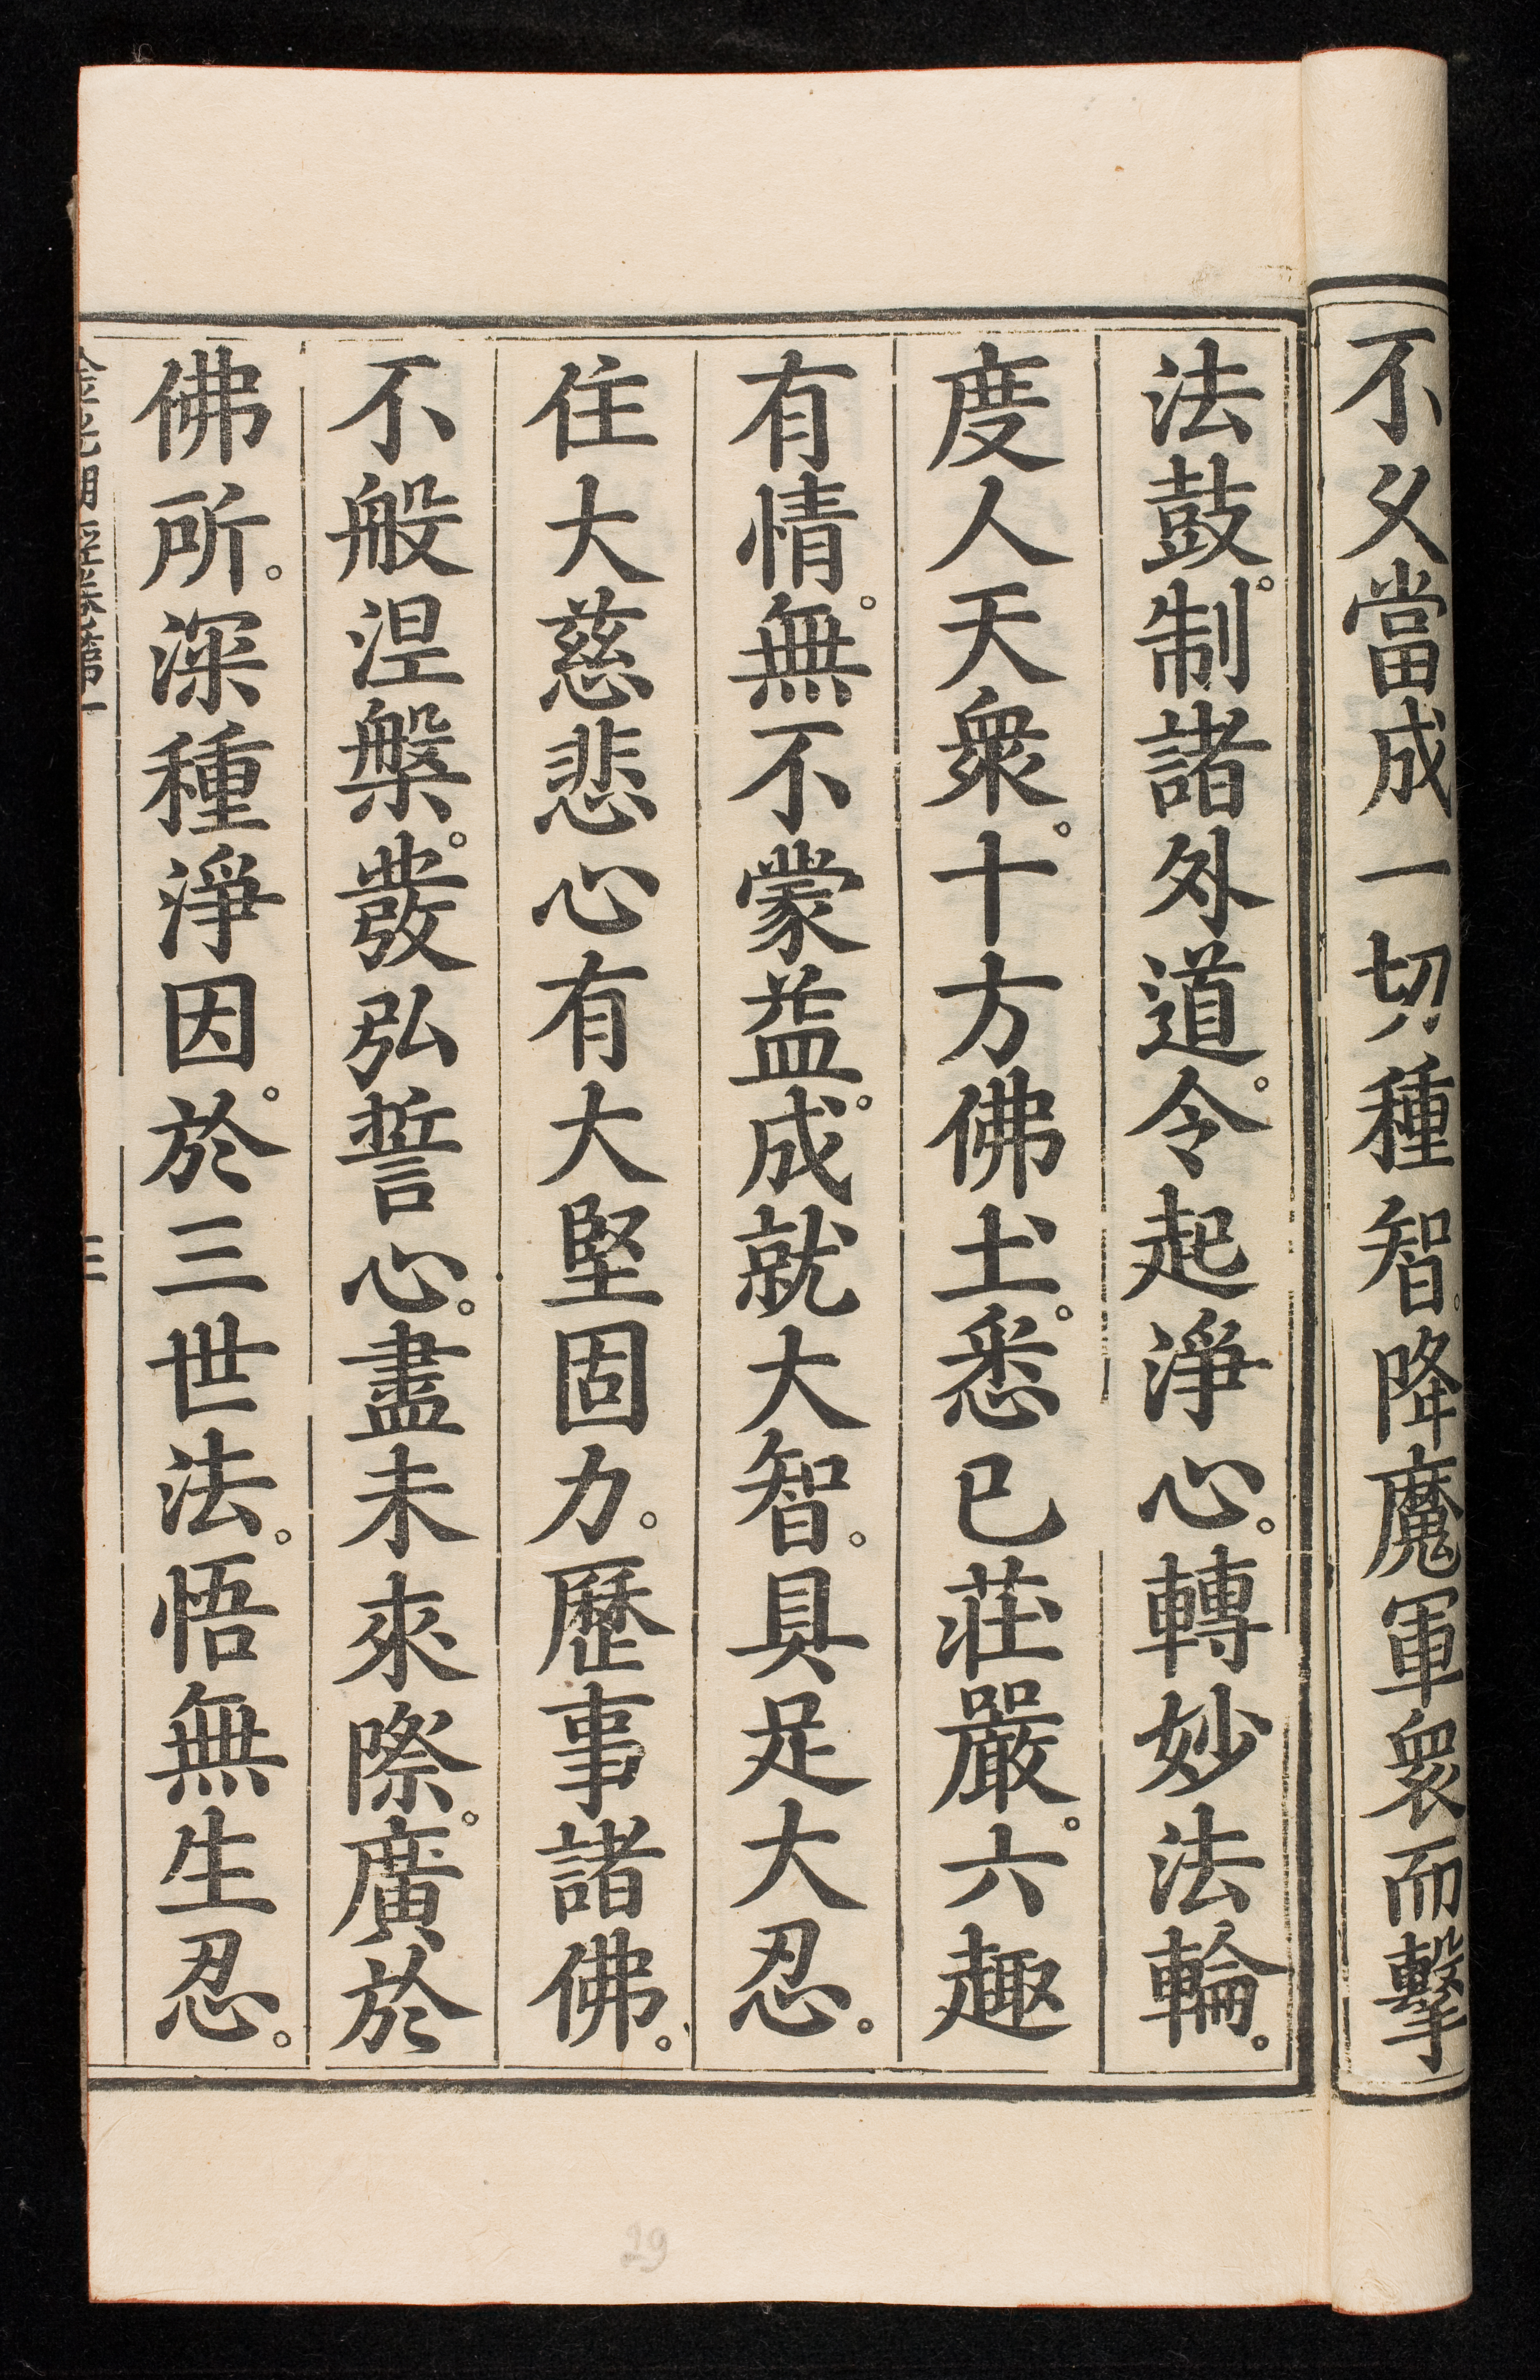 不久當成一切種智。降魔軍衆而擊
法鼓。制諸外道。令起淨心。轉妙法輪。
度人天衆。十方佛土。悉已莊嚴。六趣
有情。無不蒙益。成就大智。具足大忍。
住大慈悲心有大堅固力。歷事諸佛。
不般涅槃。發弘誓心。盡未來際。廣於
佛所。深種淨因。於三世法。悟無生忍。
金光明經卷第一
三
29